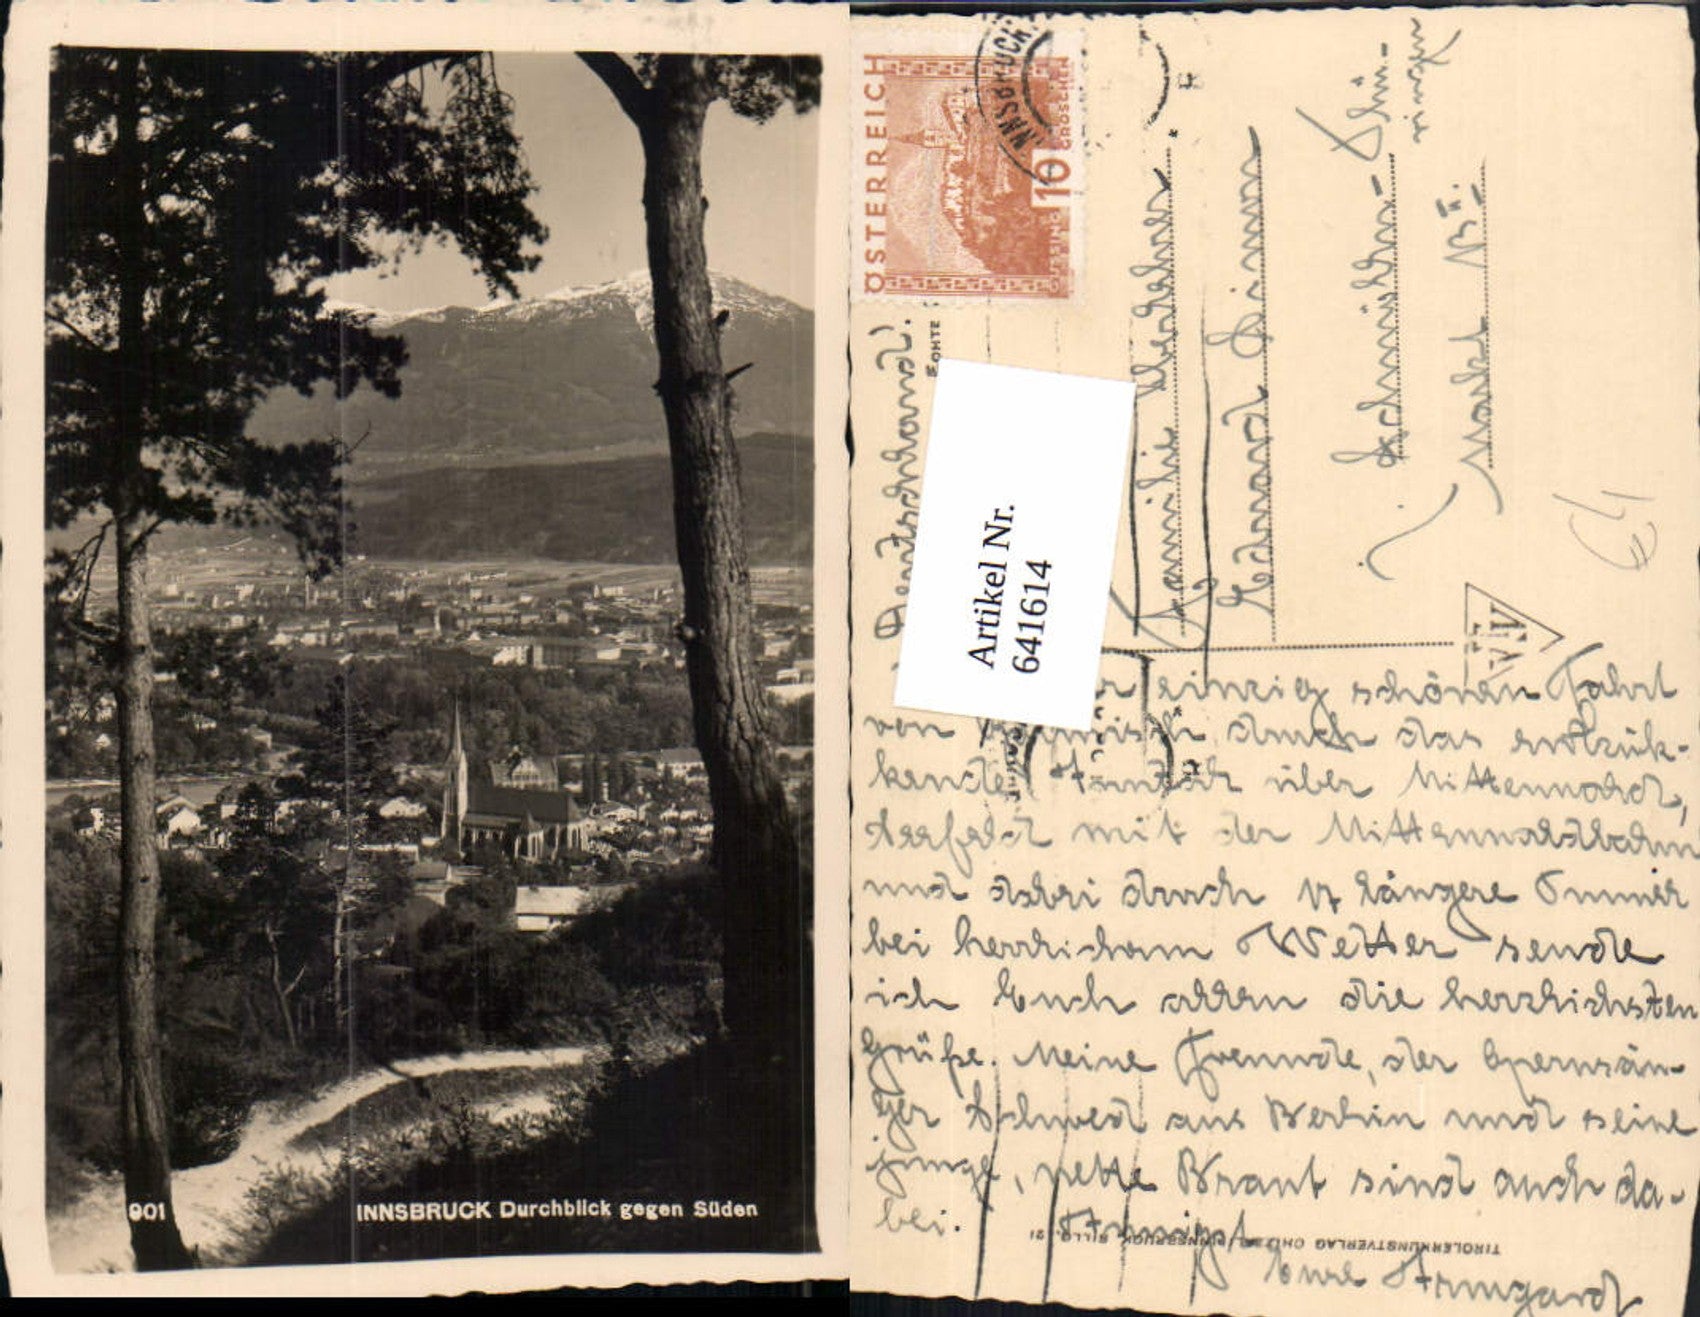 901
INNSBRUCK Durchblick gegen Süden
ÖSTERREICH
10 GROSCHEN
ESSING
INNSBRUCK
Deutschland!
ECHTE
Artikel Nr.
641614
Familie
Eduard
i. Schmölln-Thü-
ringen
Markt
einzig schönen Fahrt
von durch das entzük-
kende über Mittenwald,
Seefeld mit der Mittenwaldbahn
und dabei durch 17 längere Tunnels
bei herrlichem Wetter sende
ich Euch allen die herzlichsten
Grüße. Meine Freunde, der Opernsän-
ger aus Berlin und seine
junge, nette Braut sind auch da-
bei.
Eure Armgard
TIROLERKUNSTVERLAG CHIZZALI, INNSBRUCK